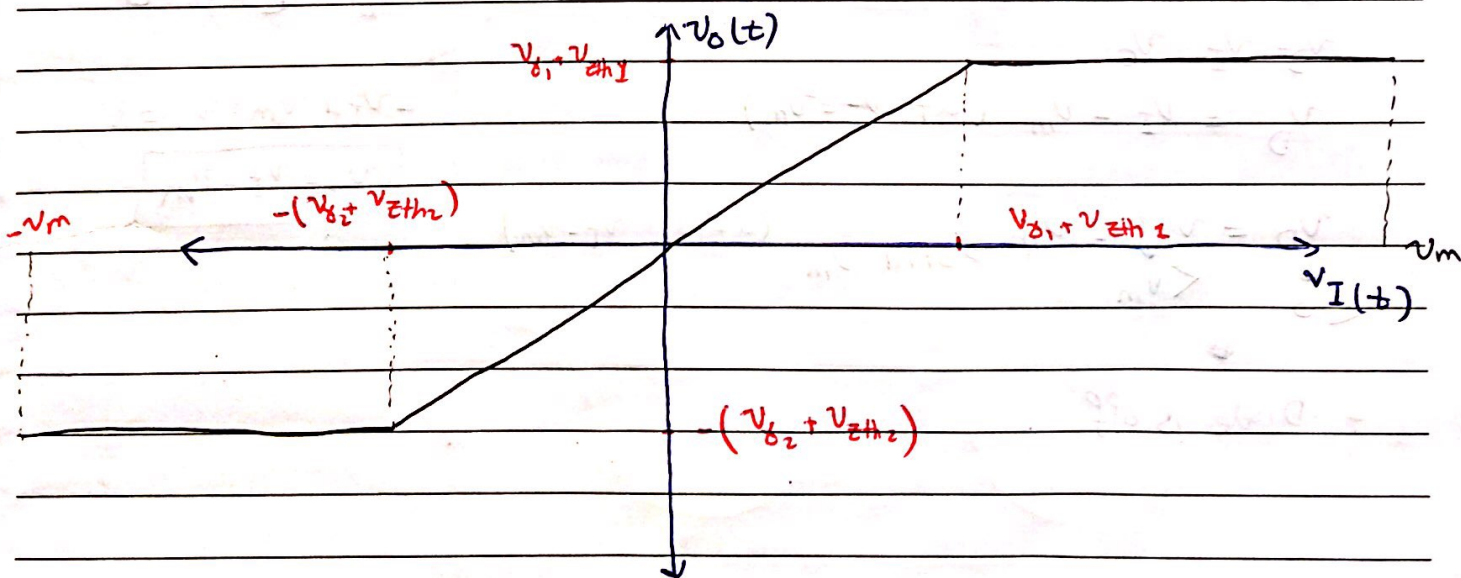 v₀(t)
Vγ₁ + V_zth1
-(Vγ₂ + V_zth₂)
-Vm
Vγ₁ + V_zth 1
Vm
V_I(t)
-(Vγ₂ + V_zth₂)